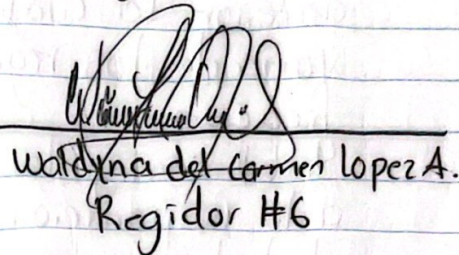 Waldina del Carmen Lopez A.
Regidor #6